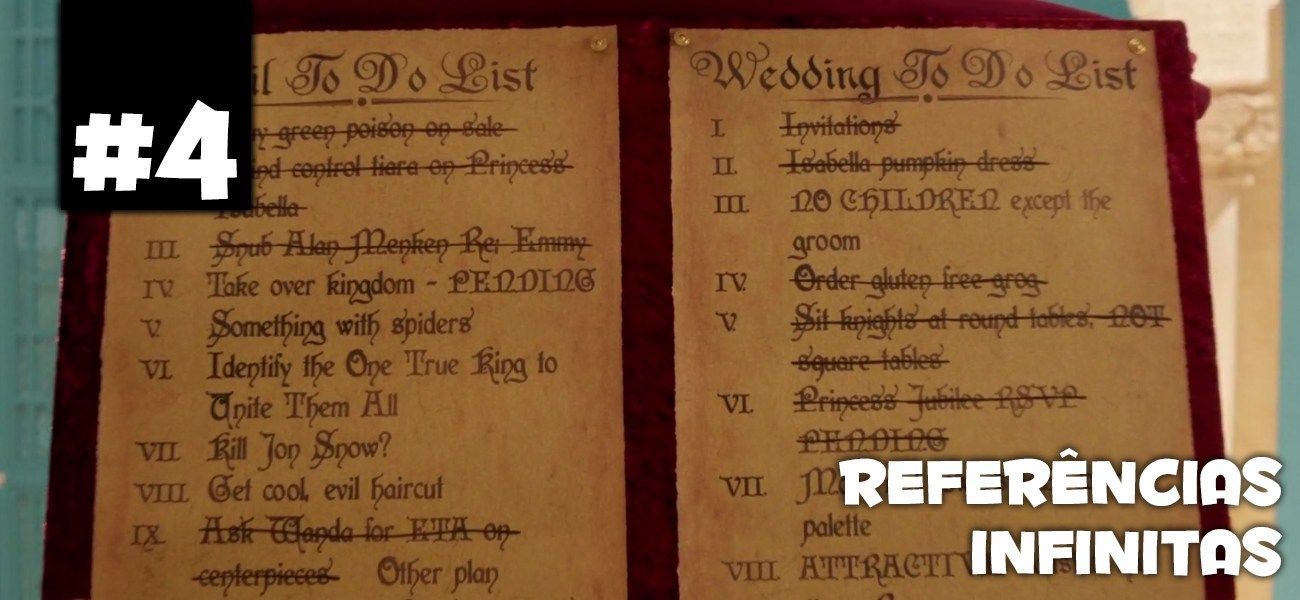 #4
To Do List
green poison on sale
control tiara on Princess
Isabella
III. Snub Alan Menken Re: Emmy
IV. Take over kingdom - PENDING
V. Something with spiders
VI. Identify the One True King to
Unite Them All
VII. Kill Jon Snow?
VIII. Get cool, evil haircut
IX. Ask Wanda for ETA on
centerpieces Other plan
Wedding To Do List
I. Invitations
II. Isabella pumpkin dress
III. NO CHILDREN except the
groom
IV. Order gluten free grog
V. Sit knights at round tables, NOT
square tables
VI. Princess Jubilee RSVP
PENDING
VII.
palette
VIII.
REFERÊNCIAS
INFINITAS